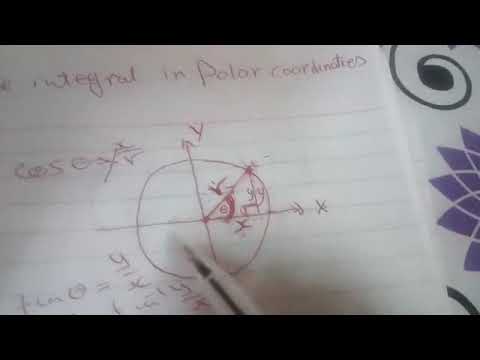 integral in Polar coordinaties
cos θ = x/r
y
r
θ
y
x
x
tan θ = y/x
y/x